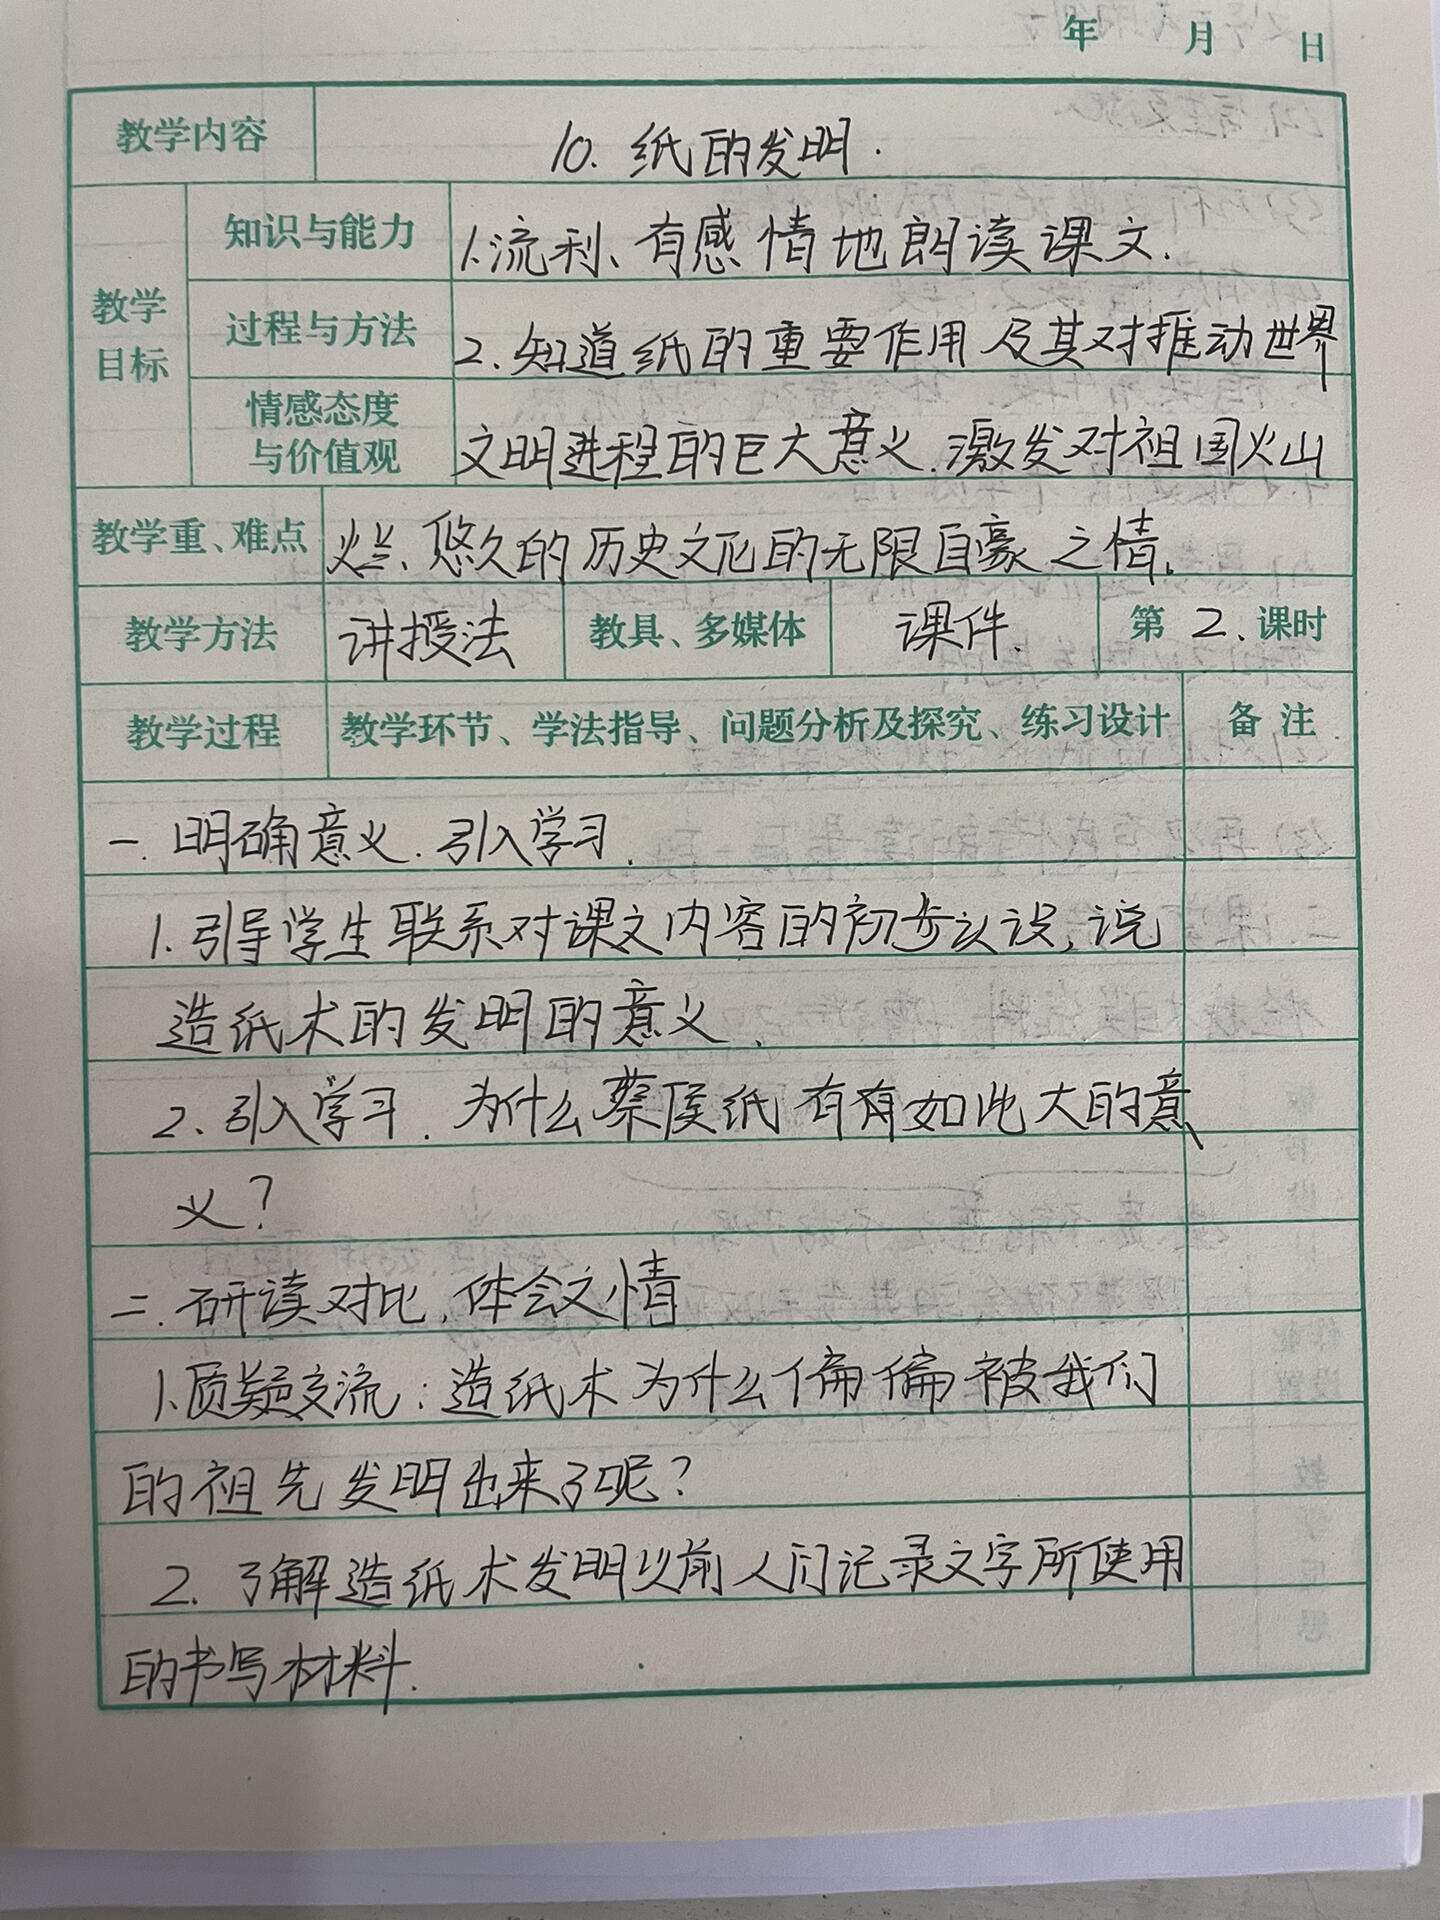 年 月 日
教学内容 10. 纸的发明.
教学目标 知识与能力 1.流利、有感情地朗读课文.
过程与方法 2.知道纸的重要作用及其对推动世界
情感态度与价值观 文明进程的巨大意义.激发对祖国火山
教学重、难点 烂、悠久的历史文化的无限自豪之情.
教学方法 讲授法 教具、多媒体 课件. 第 2. 课时
教学过程 教学环节、学法指导、问题分析及探究、练习设计 备注
一. 明确意义. 引入学习.
1.引导学生联系对课文内容的初步认设,说
造纸术的发明的意义.
2.引入学习. 为什么蔡侯纸有有如此大的意
义?
二. 研读对比, 体会文情
1.质疑交流:造纸术为什么偏偏被我们
的祖先发明出来了呢?
2. 了解造纸术发明以前人们记录文字所使用
的书写材料.